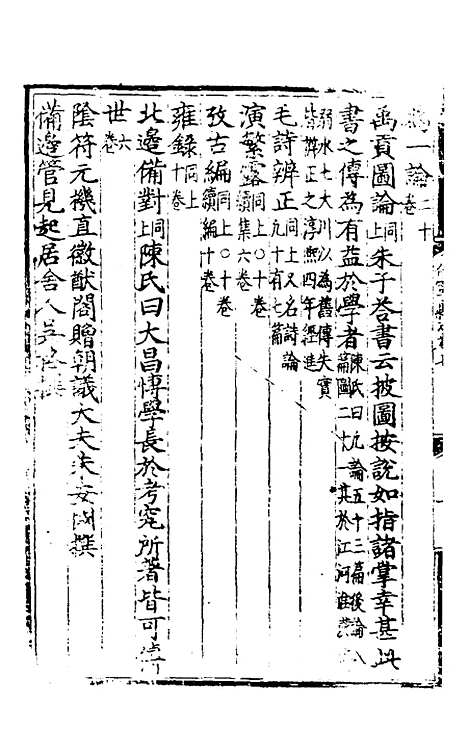 一論二十卷
禹貢圖論同上朱子荅書云披圖按說如指諸掌幸甚此
書之傳為有益於學者陳氏曰凡論五十三篇後論八篇圖二十一其於江河淮
弱水七大川以為舊傳失實皆辨正之淳熙四年經進
毛詩辨正同上又名詩論九十有七篇
演繁露同上〇十卷續集六卷
攷古編同上〇十卷續編十卷
雍錄同上十卷
北邊備對同上陳氏曰大昌博學長於考究所著皆可傳
世六卷
陰符元機直徽猷閣贈朝議大夫朱安國撰
備邊管見起居舍人